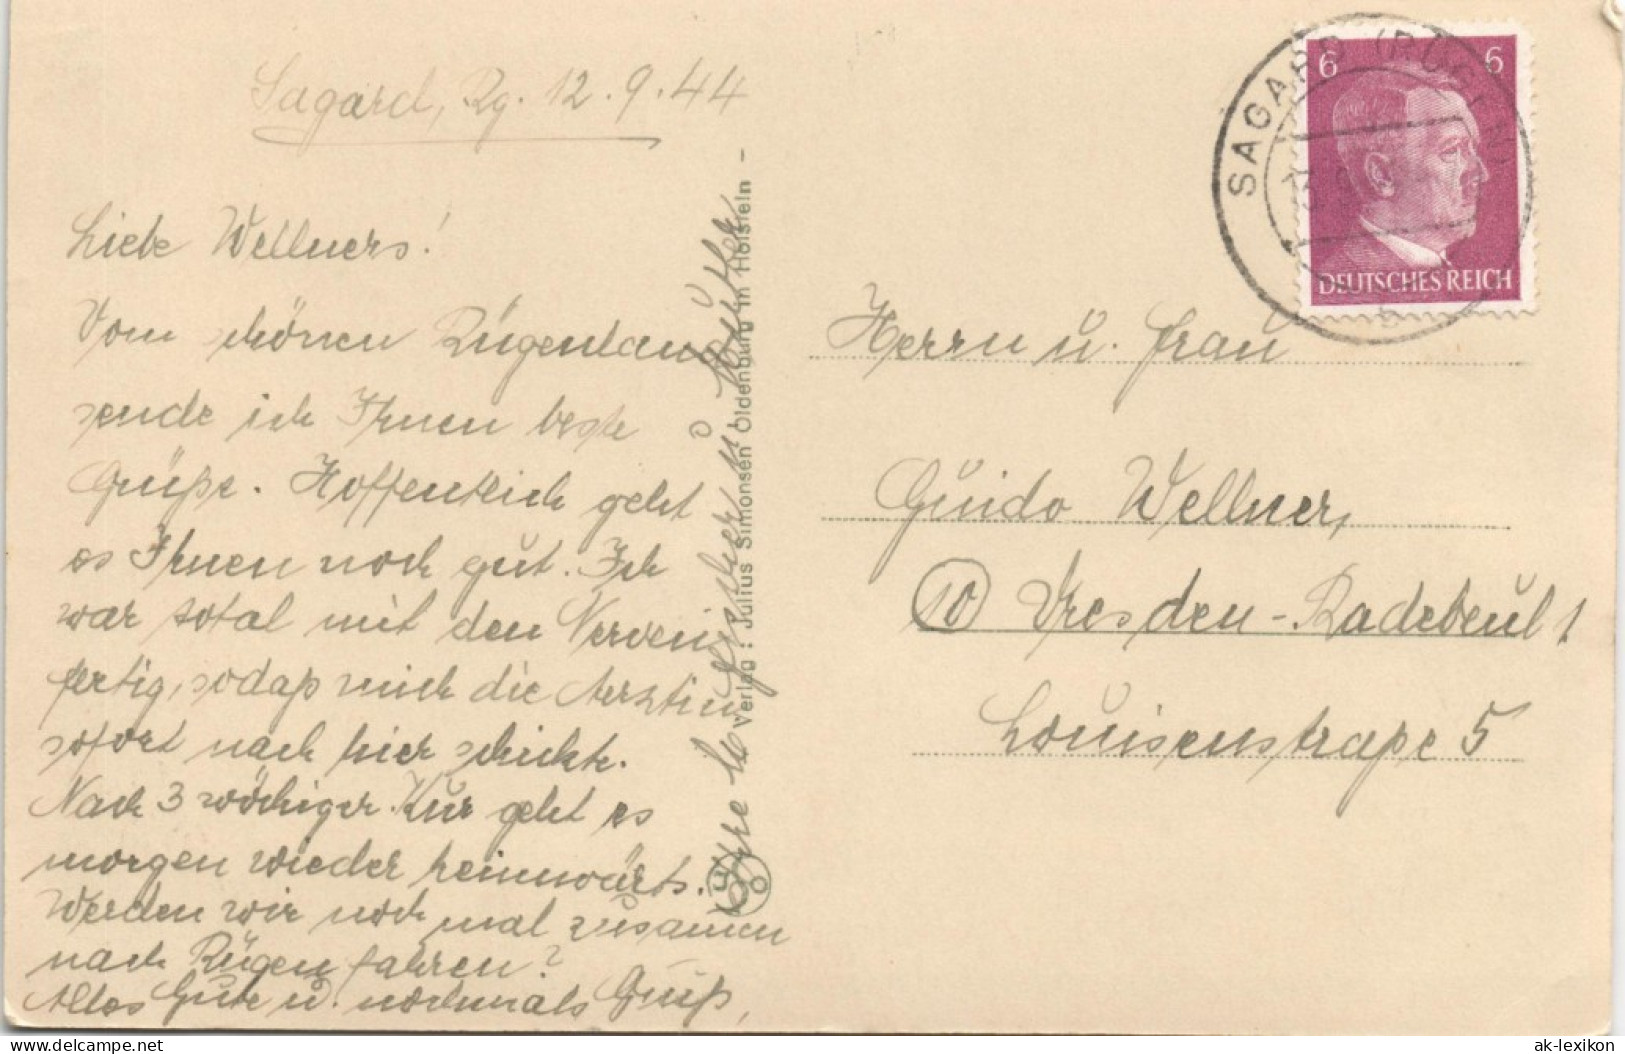 Sagard, Rg. 12.9.44
Liebe Wellners!
Vom schönen Rügenland
sende ich Ihnen beste
Grüße. Hoffentlich geht
es Ihnen noch gut. Ich
war total mit den Nerven
fertig, sodaß mich die Aerztin
sofort nach hier schickte.
Nach 3 wöchiger Kur geht es
morgen wieder heimwärts.
Werden wir noch mal zusamen
nach Rügen fahren?
Alles Gute u. nochmals Gruß,
Ihre u. Mutter
Verlag: Julius Simonsen Oldenburg in Holstein -
6 6
DEUTSCHES REICH
SAGARD (RÜGEN)
b
Herrn u. Frau
Guido Wellner,
(10) Dresden-Radebeul 1
Louisenstraße 5
www.delcampe.net
ak-lexikon